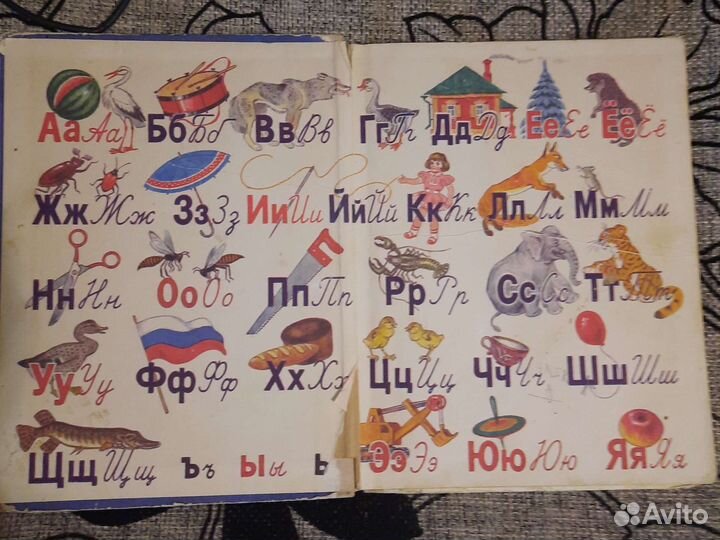 Аа Аа Бб Бб Вв Вв Гг Гг Дд Дд Ее Ее Ёё Ёё
Жж Жж Зз Зз Ии Ии Йй Йй Кк Кк Лл Лл Мм Мм
Нн Нн Оо Оо Пп Пп Рр Рр Сс Сс Тт Тт
Уу Уу Фф Фф Хх Хх Цц Цц Чч Чч Шш Шш
Щщ Щщ Ъъ Ыы Ь Ээ Ээ Юю Юю Яя Яя
Avito